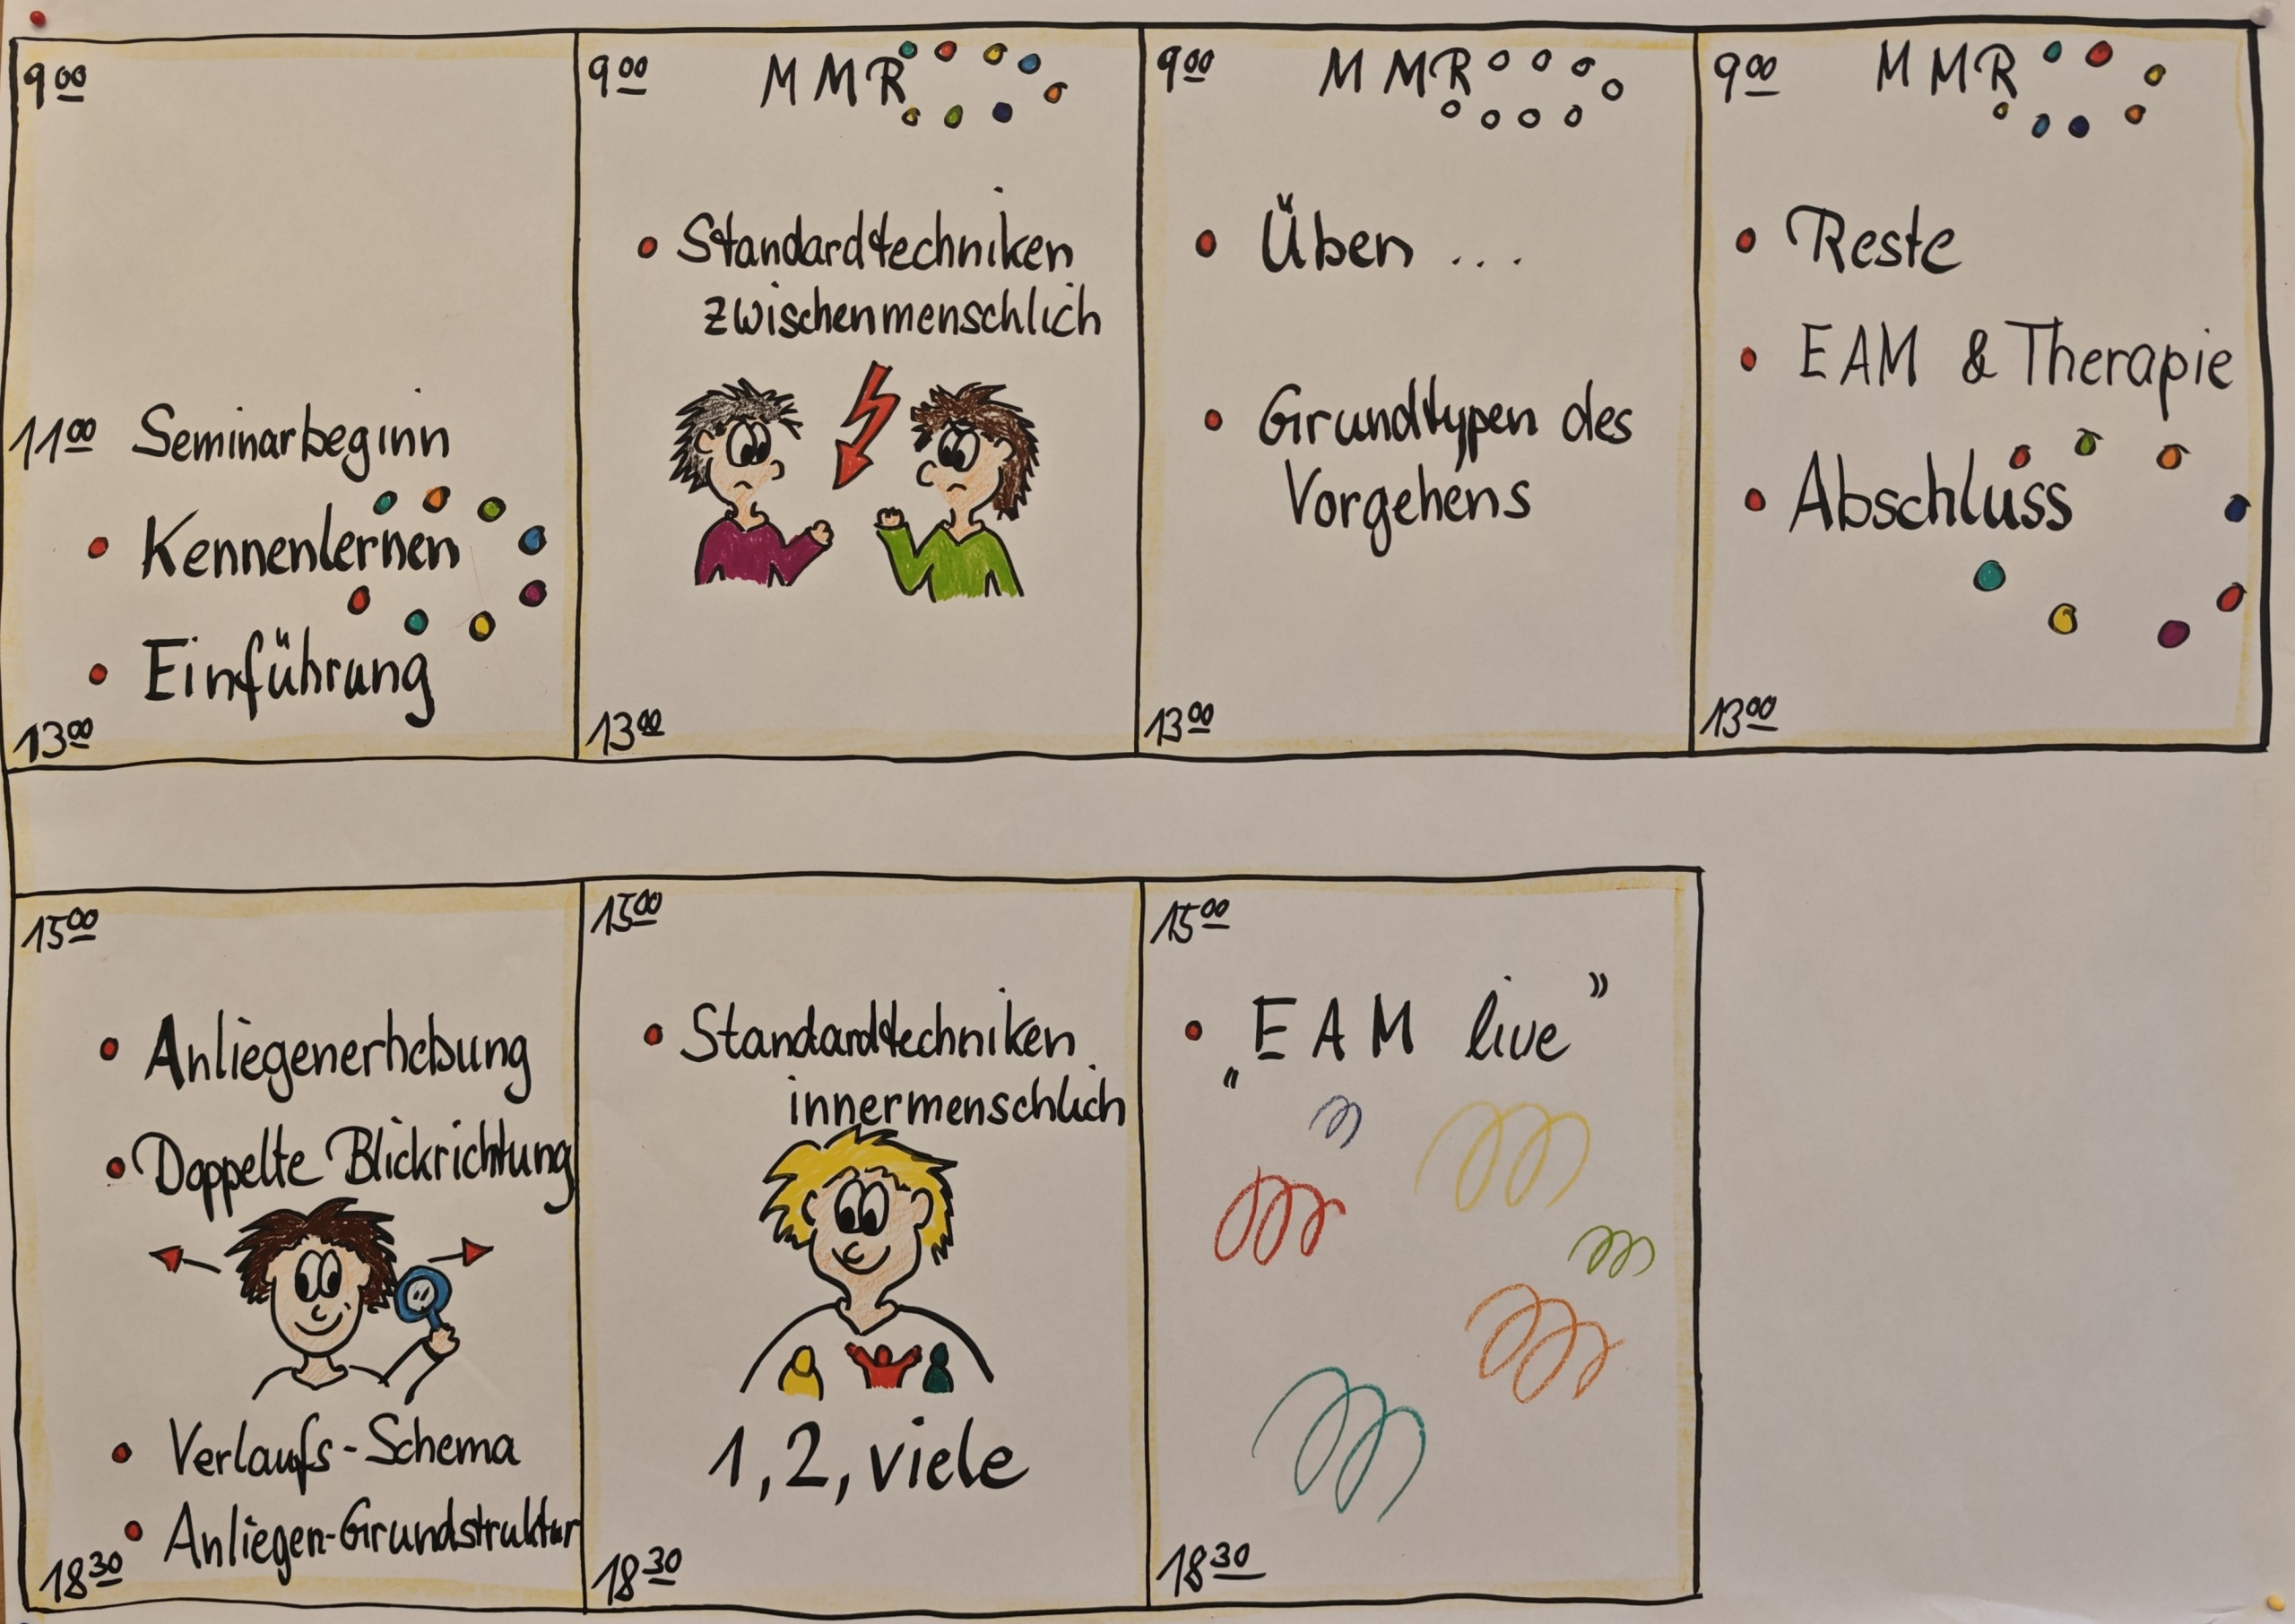 9⁰⁰
11⁰⁰ Seminarbeginn
• Kennenlernen
• Einführung
13⁰⁰
9⁰⁰ MMR
• Standardtechniken
zwischenmenschlich
13⁰⁰
9⁰⁰ MMR
• Üben ...
• Grundtypen des
Vorgehens
13⁰⁰
9⁰⁰ MMR
• Reste
• EAM & Therapie
• Abschluss
13⁰⁰
15⁰⁰
• Anliegenerhebung
• Doppelte Blickrichtung
• Verlaufs-Schema
• Anliegen-Grundstruktur
18³⁰
15⁰⁰
• Standardtechniken
innermenschlich
1, 2, viele
18³⁰
15⁰⁰
• „EAM live”
18³⁰